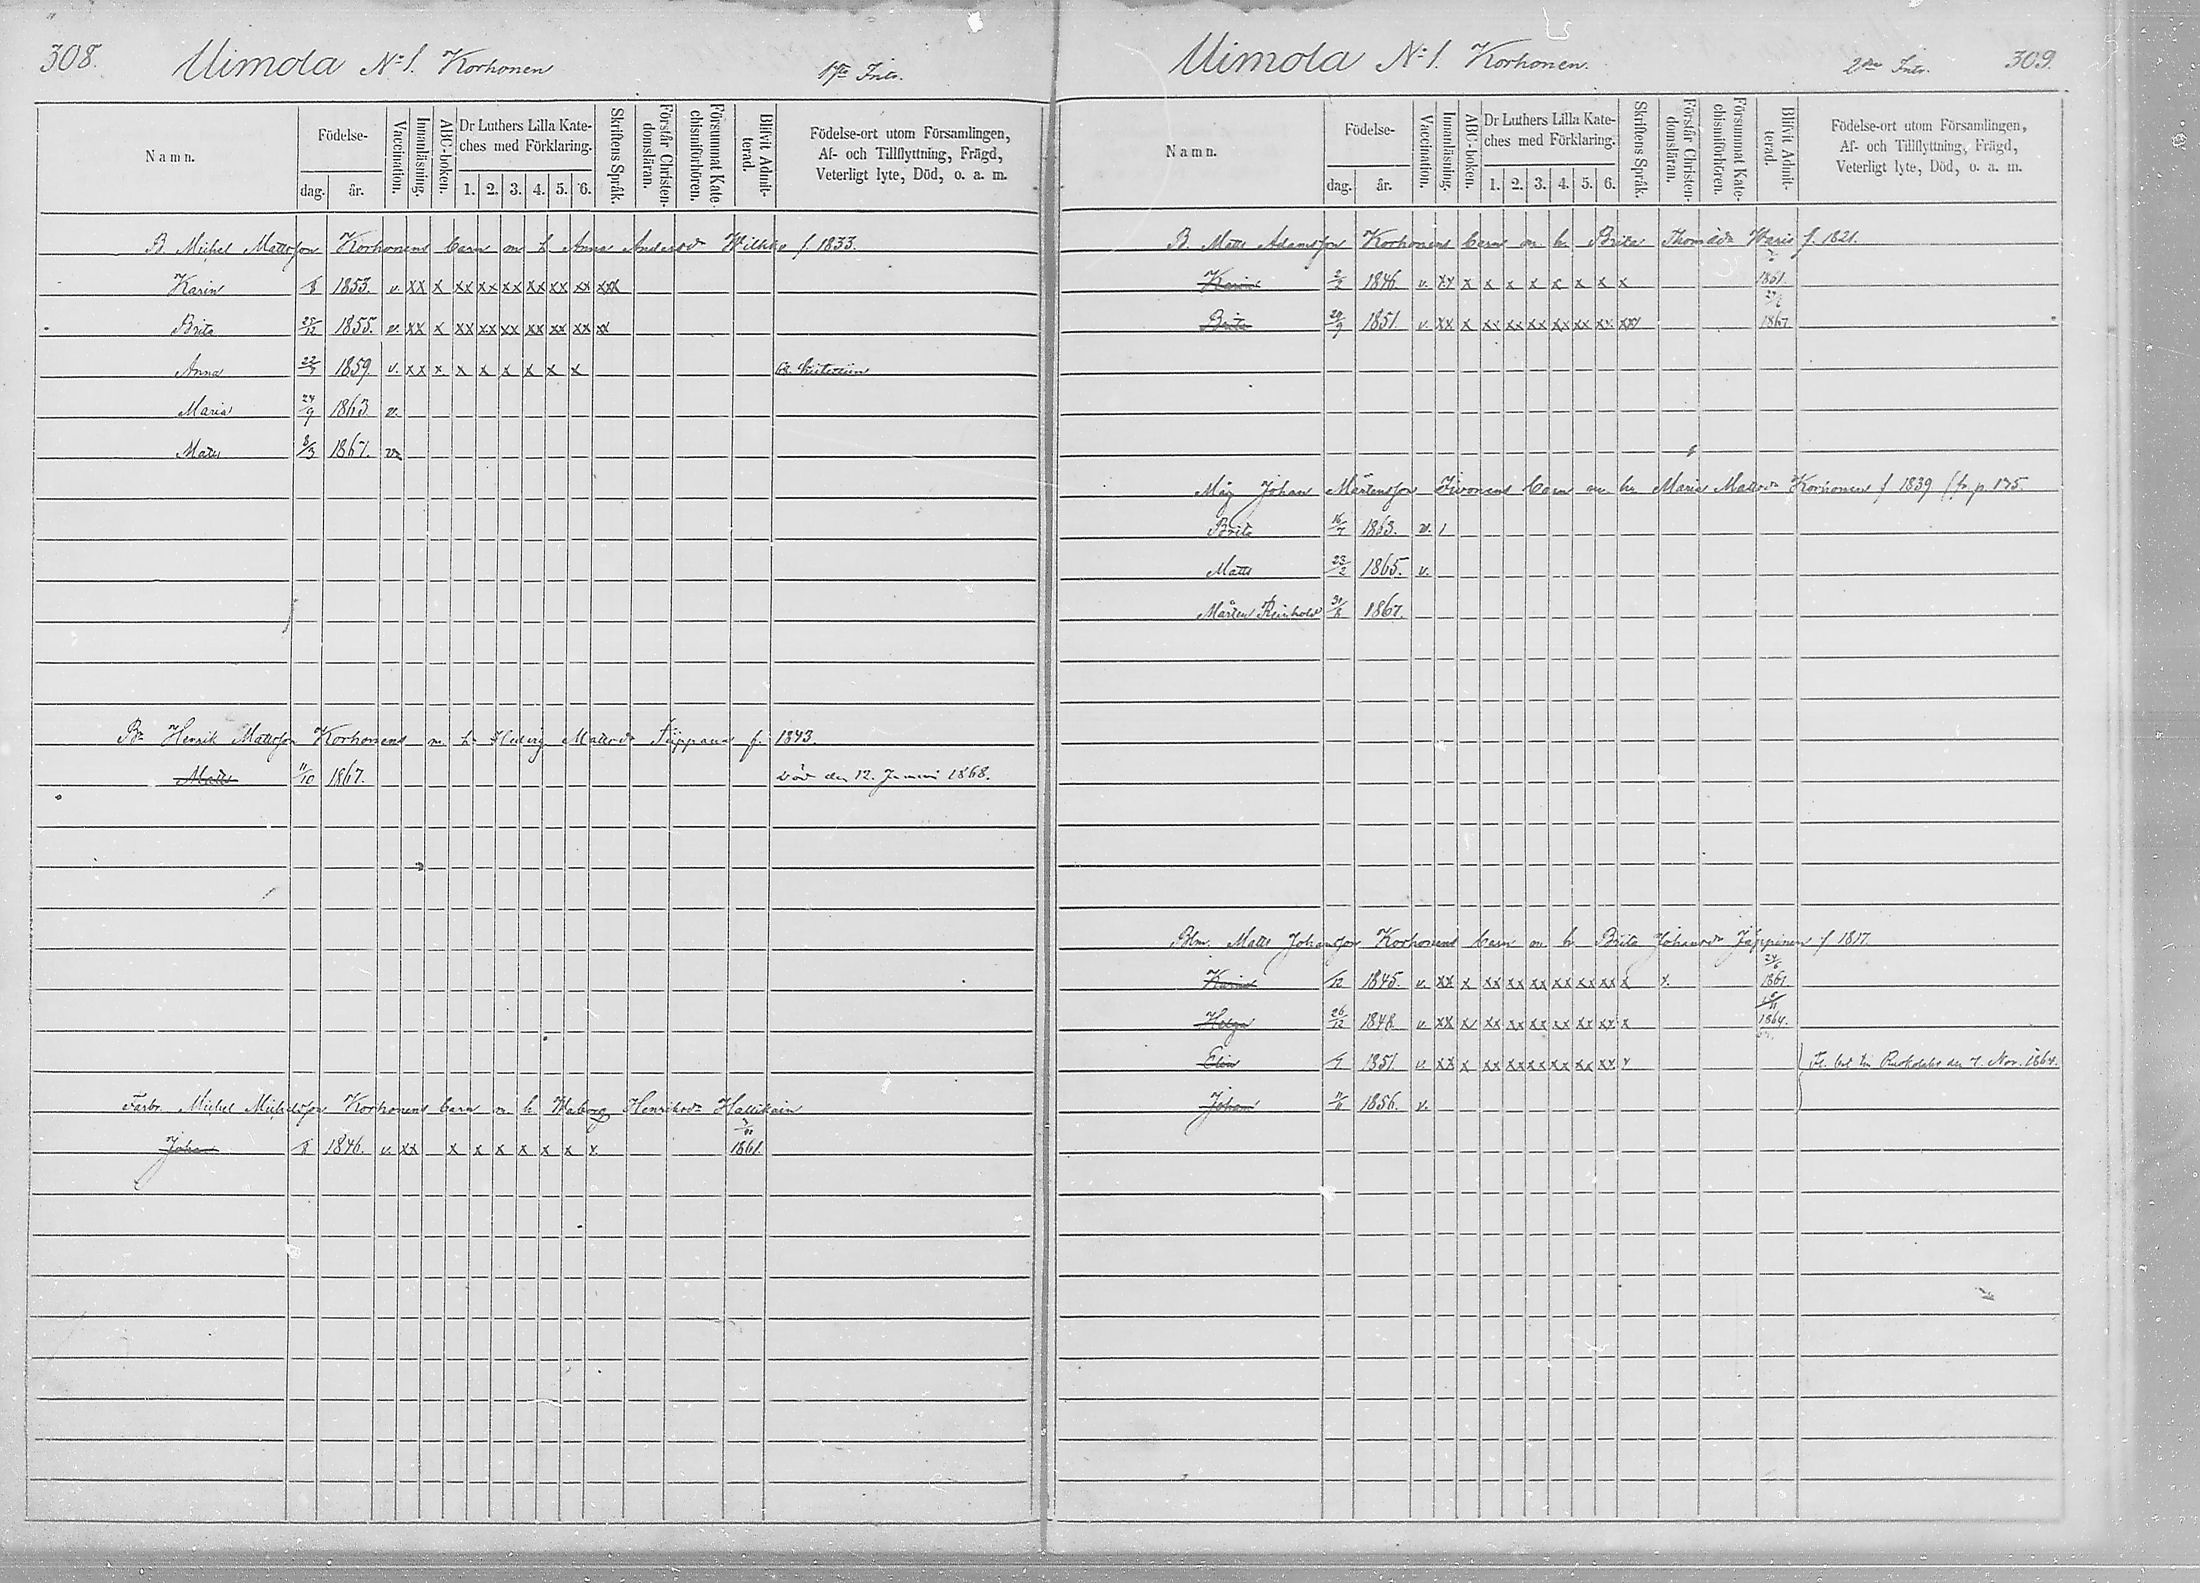 308. Uimola N:1. Korhonen 1sta Intr.
Namn.
Födelse-
dag. år.
Vaccination.
Innanläsning.
ABC-boken.
Dr Luthers Lilla Kate-
ches med Förklaring.
1. 2. 3. 4. 5. 6.
Skriftens Språk.
Förstår Christen-
domsläran.
Försummat Kate-
chismiförhören.
Blifvit Admit-
terad.
Födelse-ort utom Församlingen,
Af- och Tillflyttning, Frägd,
Veterligt lyte, Död, o. a. m.
B. Michel Mattsson Korhonens barn m h Anna Andersdr f 1833.
Karin 1853. v. xx x xx xx xx xx xx xx xxx
Brita 25/12 1855. v. xx x xx xx xx xx xx xx xx
Anna 1859. v. xx x x x x x x x
Maria 24/9 1863. v.
Matts 8/3 1867. v.
Henrik Mattsson Korhonens m h Hedvig Mattsdr f. 1843.
Matts 11/10 1867. död den 12. Junii 1868.
Michel Michelsson Korhonens barn m h Walborg Henriksdr
Johan 1846. v. xx x x x x x x x 1861.
Uimola N:1. Korhonen. 2dra Intr. 309.
Namn.
Födelse-
dag. år.
Vaccination.
Innanläsning.
ABC-boken.
Dr Luthers Lilla Kate-
ches med Förklaring.
1. 2. 3. 4. 5. 6.
Skriftens Språk.
Förstår Christen-
domsläran.
Försummat Kate-
chismiförhören.
Blifvit Admit-
terad.
Födelse-ort utom Församlingen,
Af- och Tillflyttning, Frägd,
Veterligt lyte, Död, o. a. m.
B. Matts Adamsson Korhonens barn m h. Brita Thomasdr Waris f. 1821.
Karin 2/2 1846. v. xx x x x x x x x x 1861.
Brita 29/9 1851. v xx x xx xx xx xx xx xx xxx 1867
Måg Johan Mårtensson barn m h Maria Mattsdr Korhonen f 1839 (fr. p. 175.
Brita 16/7 1863. v. 1
Matts 23/2 1865. v.
Mårten Reinhold 31/8 1867.
Matts Johansson Korhonens barn m h. Brita Johansdr Jäppinen f 1817.
Karin 1845. v. xx x xx xx xx xx xx xx x x. 24/6 1861.
Helga 26/12 1848. v xx x xx xx xx xx xx xx x 1864.
Elin 1851. v. xx x xx xx xx xx xx xx x den 7. Nov. 1864.
Johan 1856. v.